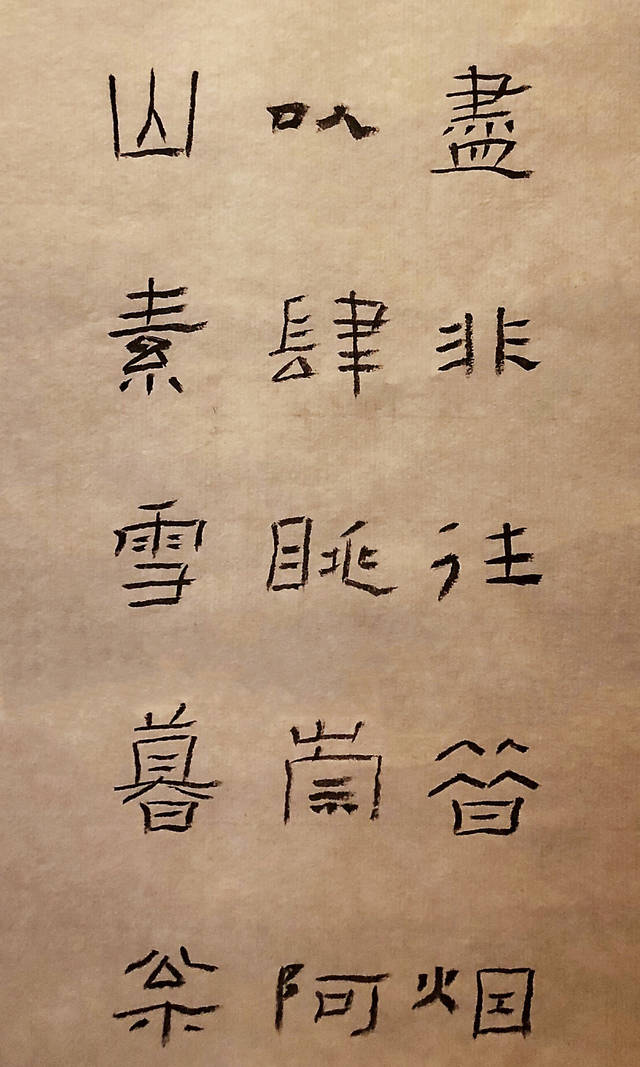 盡非往昔烟
以肆眺崇阿
山素雪暮